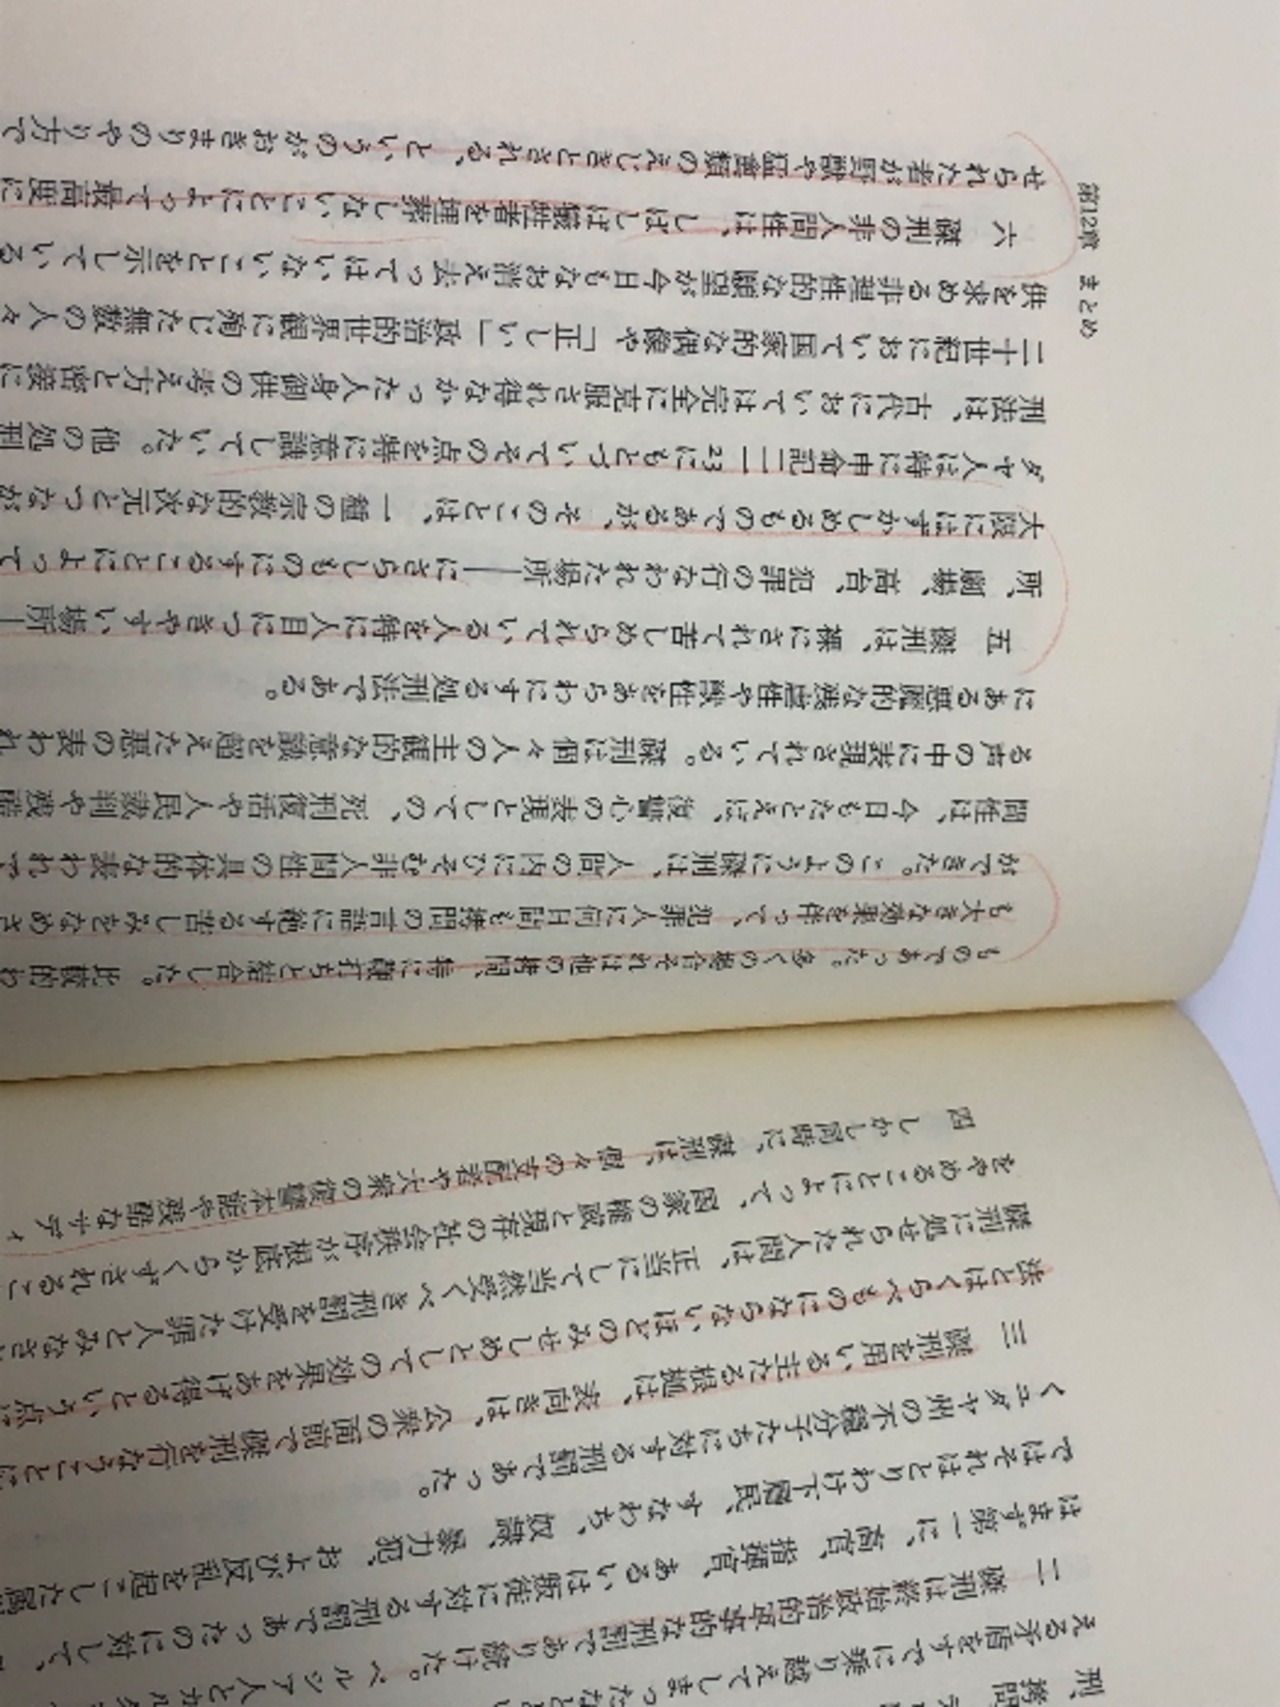 刑、
拷問
える矛盾をすでに乗り越えてしまった
二　磔刑は終始政治的軍事的な刑罰であり続けた。ペルシア人とカルタ
はまず第一に、高官、指揮官、あるいは叛徒に対する刑罰であったのに対して、
ではそれはとりわけ下層民、すなわち、奴隷、暴力犯、および反乱を起こした属
くユダヤ州の不穏分子たちに対する刑罰であった。
三　磔刑を用いる主たる根拠は、表向きは、公衆の面前で磔刑を行なうことに
法とはくらべものにならないほどのみせしめとしての効果をあげ得るという点
磔刑に処せられた人間は、正当にして当然受くべき刑罰を受けた罪人とみなさ
をやめることによって、国家の権威と現存の社会秩序が根底からくずされるこ
四　しかし同時に、磔刑は、個々の支配者や大衆の復讐本能や残酷なサディ
ものであった。多くの場合それは他の拷問、特に鞭打ちと結合した。比較的わ
も大きな効果を伴って、犯罪人に何日間も拷問の言語に絶する苦しみをなめさ
ができた。このように磔刑は、人間の内にひそむ非人間性の具体的な表われで
間性は、今日もたとえば、復讐心の表現としての、死刑復活や人民裁判や残酷
る声の中に表現されている。磔刑は個々人の主観的な意識を超えた悪の表われ
にある悪魔的な残虐性や獣性をあらわにする処刑法である。
五　磔刑は、裸にされて苦しめられている人を特に人目につきやすい場所―
所、劇場、高台、犯罪の行なわれた場所――にさらしものにすることによって
大限にはずかしめるものであるが、そのことは、一種の宗教的な次元とつなが
ダヤ人は特に申命記二一23にもとづいてその点を特に意識していた。他の処刑
刑法は、古代においては完全に克服され得なかった人身御供の考え方と密接に
二十世紀において国家的な偶像や「正しい」政治的世界観に殉じた無数の人々
供を求める非理性的な願望が今日もなお消え去ってはいないことを示している
六　磔刑の非人間性は、しばしば犠牲者を埋葬しないことによって最高度に
せられた者が野獣や猛禽類のえじきとされる、というのがおきまりのやり方で
第12章　まとめ